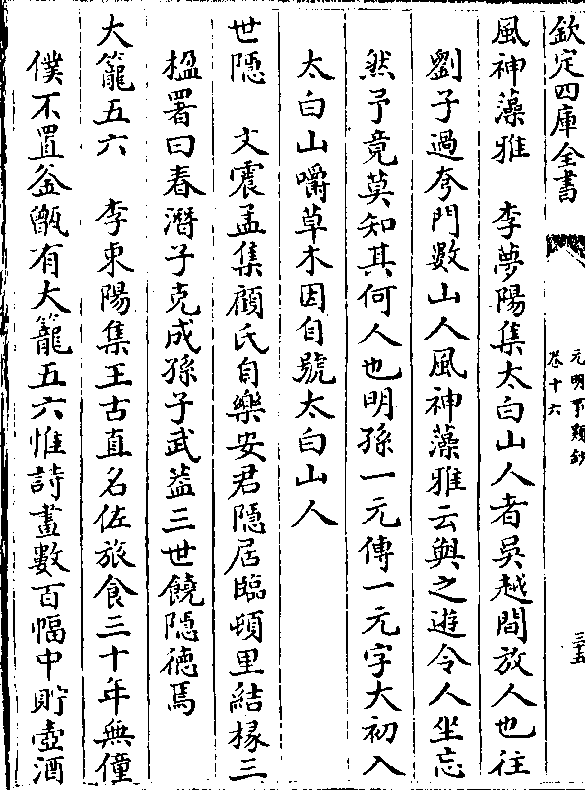 欽定四庫全書
元明事類鈔
卷十六
三五
風神藻雅　李夢陽集太白山人者吳越間放人也往
劉子過夸門數山人風神藻雅云與之遊令人坐忘
然予竟莫知其何人也明孫一元傳一元字大初入
太白山嚼草木因自號太白山人
世隱　文震孟集顧氏自樂安君隱居臨頓里結椽三
楹署曰春潛子克成孫子武葢三世饒隱德焉
大簏五六　李東陽集王古直名佐旅食三十年無僮
僕不置釡甑有大簏五六惟詩畫數百幅中貯壺酒